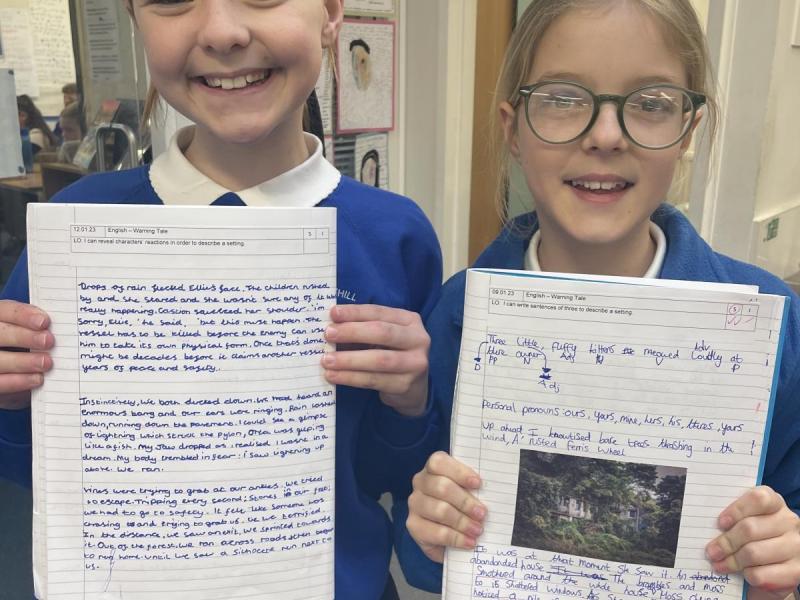 12.01.23 English – Warning Tale S I
LO: I can reveal characters' reactions in order to describe a setting.
Drops of rain flecked Ellie's face. The children rushed
by and she stared and she wasn't sure any of it was
really happening. Cassian squeezed her shoulder. 'I'm
sorry, Ellie,' he said, 'but this must happen. The
vessel has to be killed before the enemy can use
him to take its own physical form. Once that's done,
might be decades before it claims another vessel
years of peace and safety.
Instinctively, we both ducked down. We had heard an
enormous bang and our ears were ringing. Rain lashed
down, running down the pavement. I could see a glimpse
of lightning which struck the pylon, Orca was gulping
like a fish. My jaw dropped as I realised I wasn't in a
dream. My body trembled in fear: i saw lightning up
above. We ran.
Vines were trying to grab at our ankles. We tried
to escape. Tripping every second; stones in our feet;
we had to go to safety. It felt like someone was
chasing us and trying to grab us. We we terrified.
In the distance, we saw an exit, we sprinted towards
it. Out of the forest. We ran across roads then begun
to run home. Until we saw a silhocete run next to
us.
HILL
09.01.23 English – Warning Tale S I
LO: I can write sentences of three to describe a setting.
Three little, fluffy kittens meowed loudly at
there owner
Adv
D PP N Adj N V P
Adj
personal pronouns: ours, yours, mine, hers, his, theres, yours
Up ahead I knoutised bare trees thrashing in the
wind, A rusted ferris wheel
It was at that moment she saw it. An
abandonded house The branches and moss
Smothered around the whole house. Moss
to is shattered windows. As
noticed a